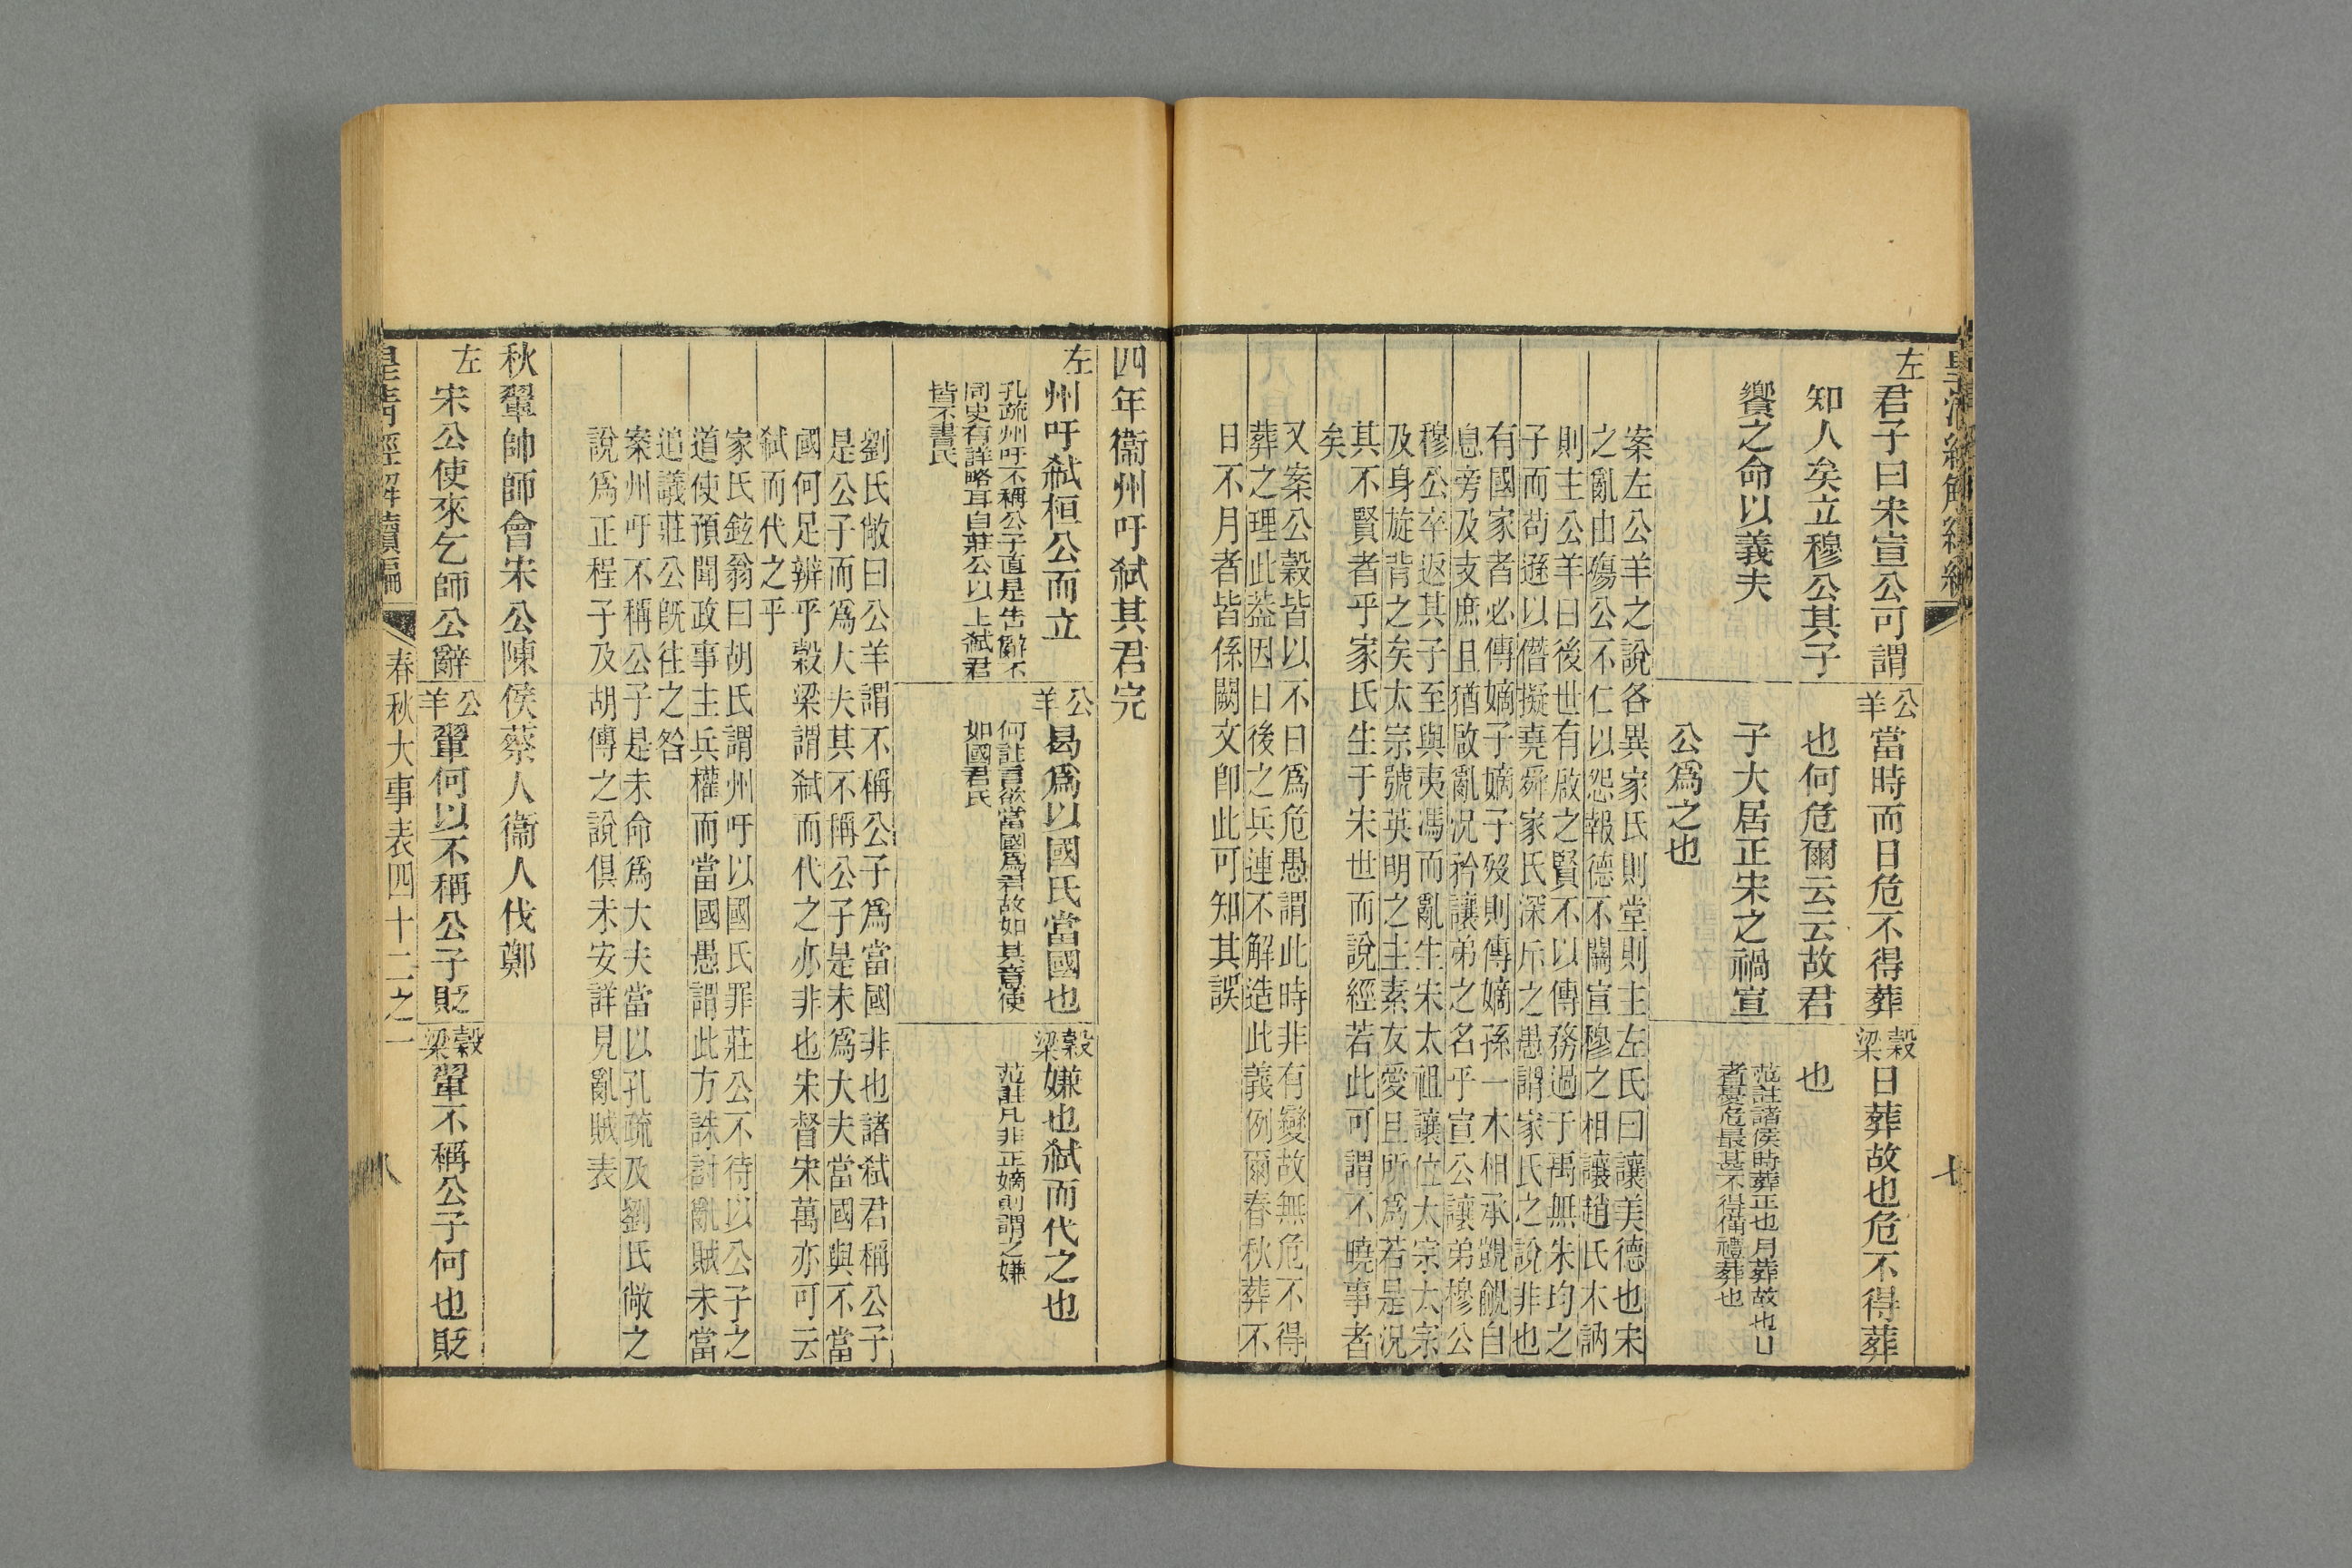 左
君子曰宋宣公可謂
知人矣立穆公其子
饗之命以義夫
公羊
當時而日危不得葬
也何危爾云云故君
子大居正宋之禍宣
公爲之也
穀梁
日葬故也危不得葬
也
范註諸侯時葬正也月葬故也日
者憂危最甚不得備禮葬也
案左公羊之說各異家氏則堂則主左氏曰讓美德也宋
之亂由殤公不仁以怨報德不關宣穆之相讓趙氏木訥
則主公羊曰後世有啟之賢不以傳務過于禹無朱均之
子而苟遜以僭擬堯舜家氏深斥之愚謂家氏之說非也
有國家者必傳嫡子嫡子歿則傳嫡孫一本相承覬覦自
息旁及支庶且猶啟亂況矜讓弟之名乎宣公讓弟穆公
穆公卒返其子至與夷馮而亂生宋太祖讓位太宗太宗
及身旋背之矣太宗號英明之主素友愛且所爲若是況
其不賢者乎家氏生于宋世而說經若此可謂不曉事者
矣
又案公穀皆以不日爲危愚謂此時非有變故無危不得
葬之理此葢因日後之兵連不解造此義例爾春秋葬不
日不月者皆係闕文卽此可知其誤
七
四年衞州吁弒其君完
左
州吁弒桓公而立
孔疏州吁不稱公子直是告辭不
同史有詳略耳自莊公以上弒君
皆不書氏
公羊
曷爲以國氏當國也
何註言欲當國爲君故如其意使
如國君氏
穀梁
嫌也弒而代之也
范註凡非正嫡則謂之嫌
劉氏敞曰公羊謂不稱公子爲當國非也諸弒君稱公子
是公子而爲大夫其不稱公子是未爲大夫當國與不當
國何足辨乎穀梁謂弒而代之亦非也宋督宋萬亦可云
弒而代之乎
家氏鉉翁曰胡氏謂州吁以國氏罪莊公不待以公子之
道使預聞政事主兵權而當國愚謂此方誅討亂賊未當
追議莊公旣往之咎
案州吁不稱公子是未命爲大夫當以孔疏及劉氏敞之
說爲正程子及胡傳之說俱未安詳見亂賊表
秋翬帥師會宋公陳侯蔡人衞人伐鄭
左
宋公使來乞師公辭
公羊
翬何以不稱公子貶
穀梁
翬不稱公子何也貶
皇淸經解續編
春秋大事表四十二之一
八